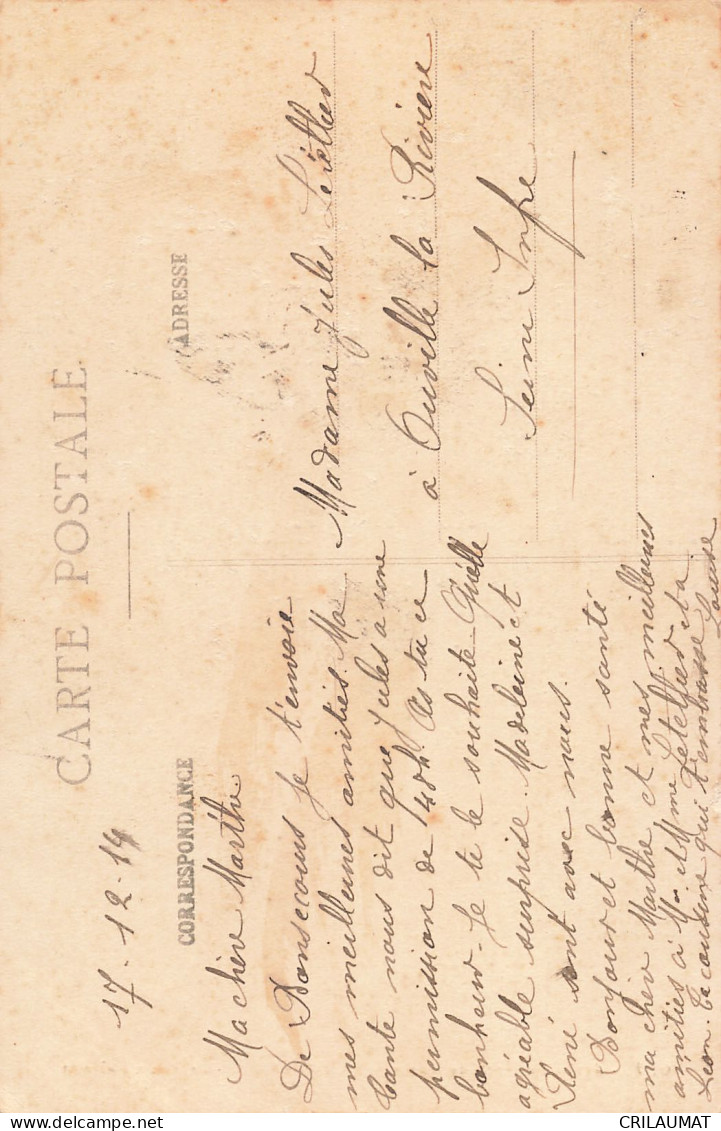 CARTE POSTALE
17-12-14
CORRESPONDANCE
Ma chèr Marthe
De Bonsecours je t'envoie
mes meilleures amitiés. Ma
tante nous dit que Jules a une
permission de 48h. As tu ce
bonheur. Je te le souhaite Quelle
agréable surprise. Madeleine et
René sont avec nous.
Bonjour et bonne santé
ma chèr Marthe et mes meilleures
amitiés à Mr et Mme Letellier et a
Léon. Ta cousine qui t'embrasse Louise
ADRESSE
Madame Jules Letellier
à Ouville la Rivière
Seine Infre
CRILAUMAT